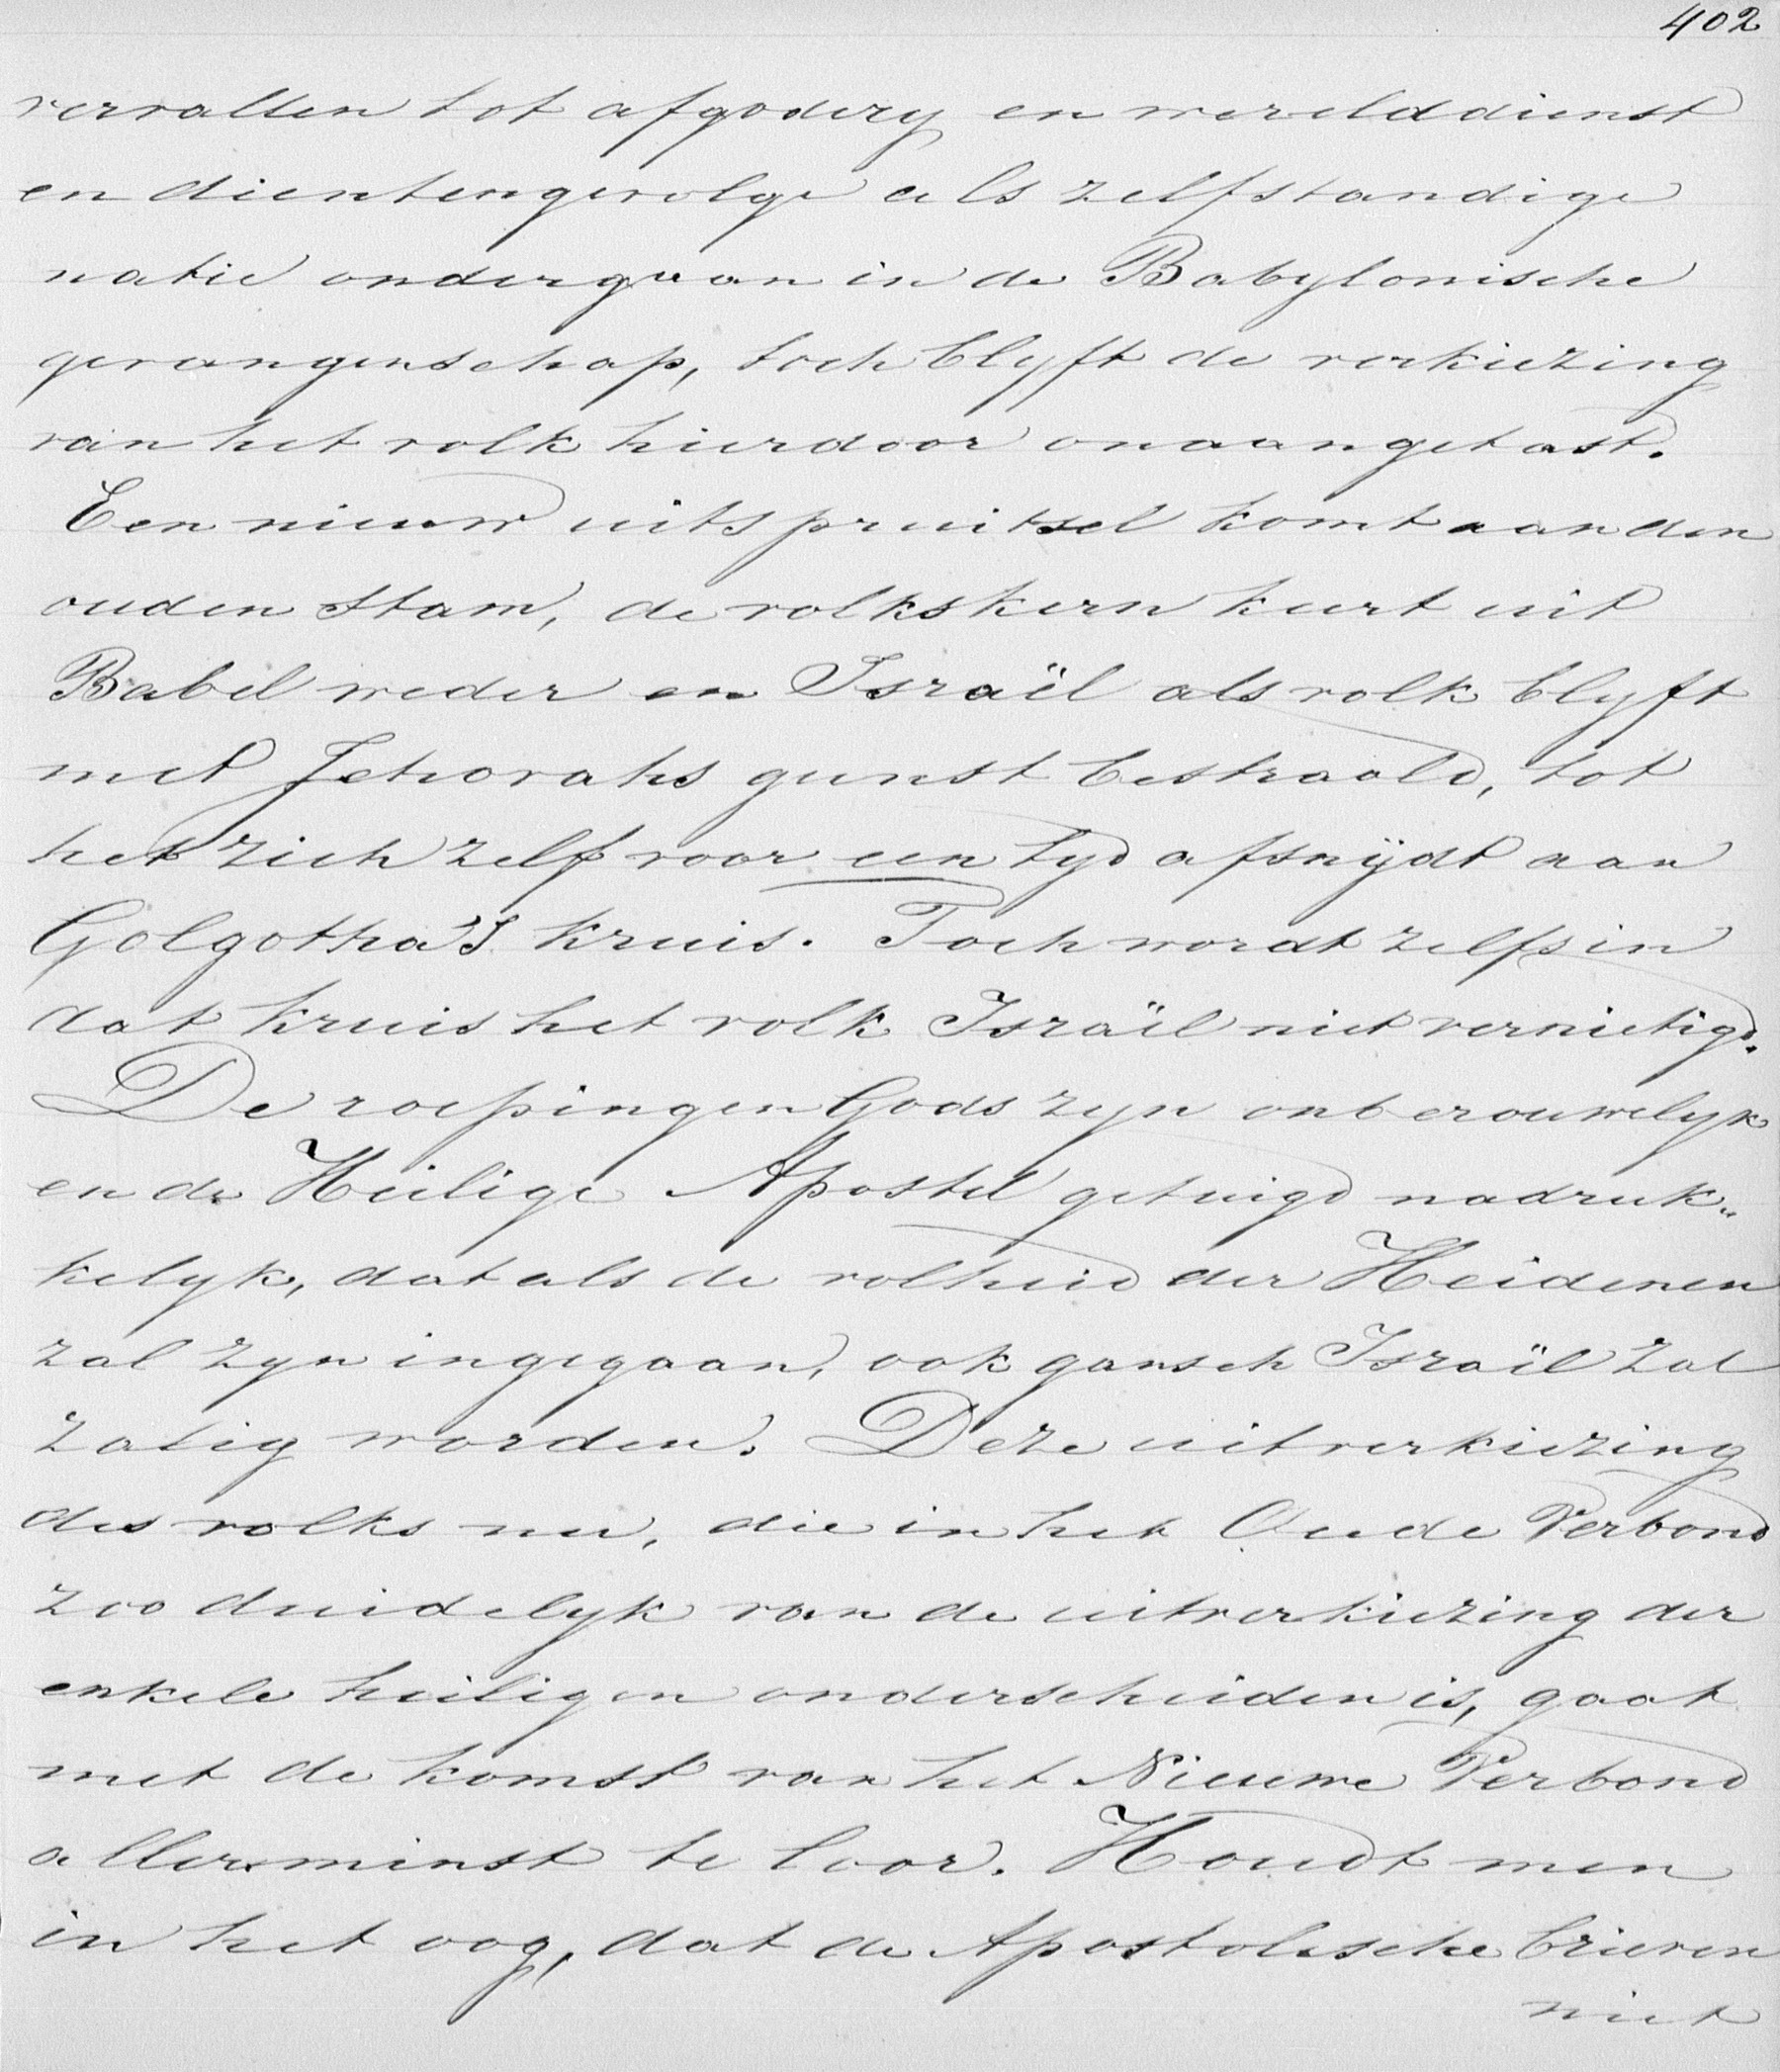 402
vervallen tot afgodery en werelddienst
en dientengevolge als zelfstandige
natie ondergaan in de Babylonische
gevangenschap, toch blyft de verkiezing
van het volk hierdoor onaangetast.
Een nieuw uitspruitsel komt aan den
ouden stam, de volkskern keert uit
Babel weder en Israël als volk blyft
met Jehovahs gunst bestraald, tot
het zich zelf voor een tyd afsnijdt aan
Golgotha's Kruis. Toch wordt zelfs in
dat kruis het volk Israël niet vernietigd.
De roepingen Gods zyn onberouwelyk
en de Heilige Apostel getuigd nadruk„
kelyk, dat als de volheid der Heidenen
zal zyn ingegaan, ook gansch Israël zal
zalig worden. Deze uitverkiezing
des volks nu, die in het Oude Verbond
zoo duidelyk van de uitverkiezing der
enkele heiligen onderscheiden is, gaat
met de komst van het Nieuwe Verbond
allerminst te loor. Houdt men
in het oog, dat de Apostolische brieven
niet